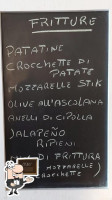 FRITTURE
PATATINE
CROCCHETTE DI
PATATE
MOZZARELLE STIK
OLIVE ALL'ASCOLANA
ANELLI DI CIPOLLA
JALAPEÑO
RIPIENI
DI FRITTURA
MOZZARELLE
CROCCHETTE